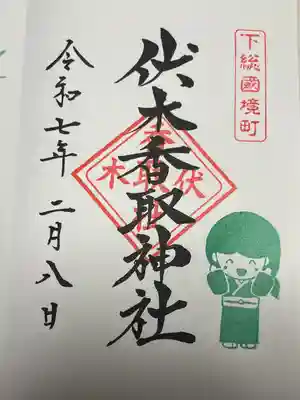 下総國境町
伏木香取神社
令和七年 二月八日